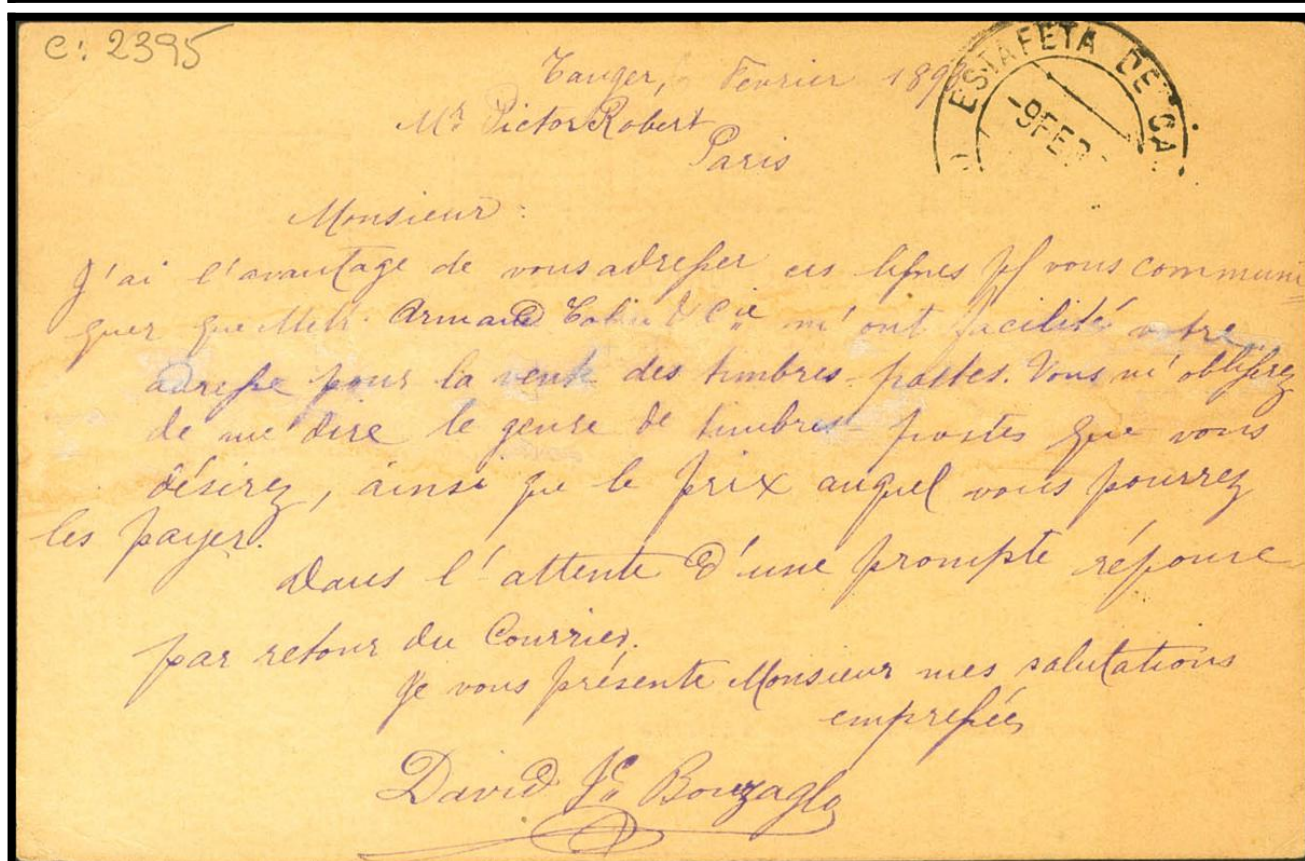 C: 2395
Tanger, Fevrier 189
ESTAFETA DE CA
-9 FEB
Mr Victor Robert
Paris
Monsieur :
J'ai l'avantage de vous adresser ces lignes pr vous communi=
quer que Messrs. Armand Colin & Cie m'ont facilité votre
adresse pour la vente des timbres-postes. Vous m'obligerez
de me dire le genre de timbres-postes que vous
désirez, ainsi que le prix auquel vous pourrez
les payer.
Dans l'attente d'une prompte réponse
par retour du Courrier.
Je vous présente Monsieur mes salutations
empressées
David Bouzaglo